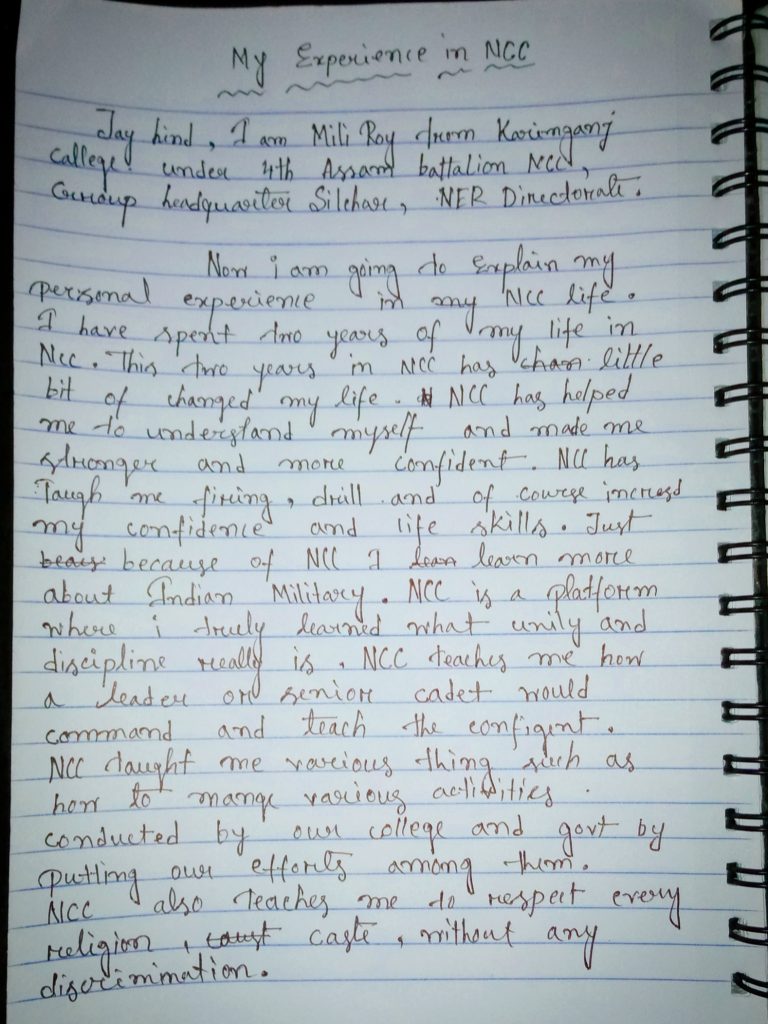 My Experience in NCC
Jay hind, I am Mili Roy from Karimganj
college under 4th Assam battalion NCC,
Group headquarter Silchar, NER Directorate.
Now i am going to Explain my
personal experience in my NCC life.
I have spent two years of my life in
NCC. This two years in NCC has chan little
bit of changed my life. NCC has helped
me to understand myself and made me
stronger and more confident. NCC has
Taugh me firing, drill and of course incresd
my confidence and life skills. Just
because of NCC I lean learn more
about Indian Military. NCC is a platform
where i truly learned what unity and
discipline really is. NCC teaches me how
a leader or senior cadet would
command and teach the configent.
NCC taught me various thing such as
how to mange various activities
conducted by our college and govt by
putting our efforts among them.
NCC also teaches me to respect every
religion, caste, without any
discrimination.